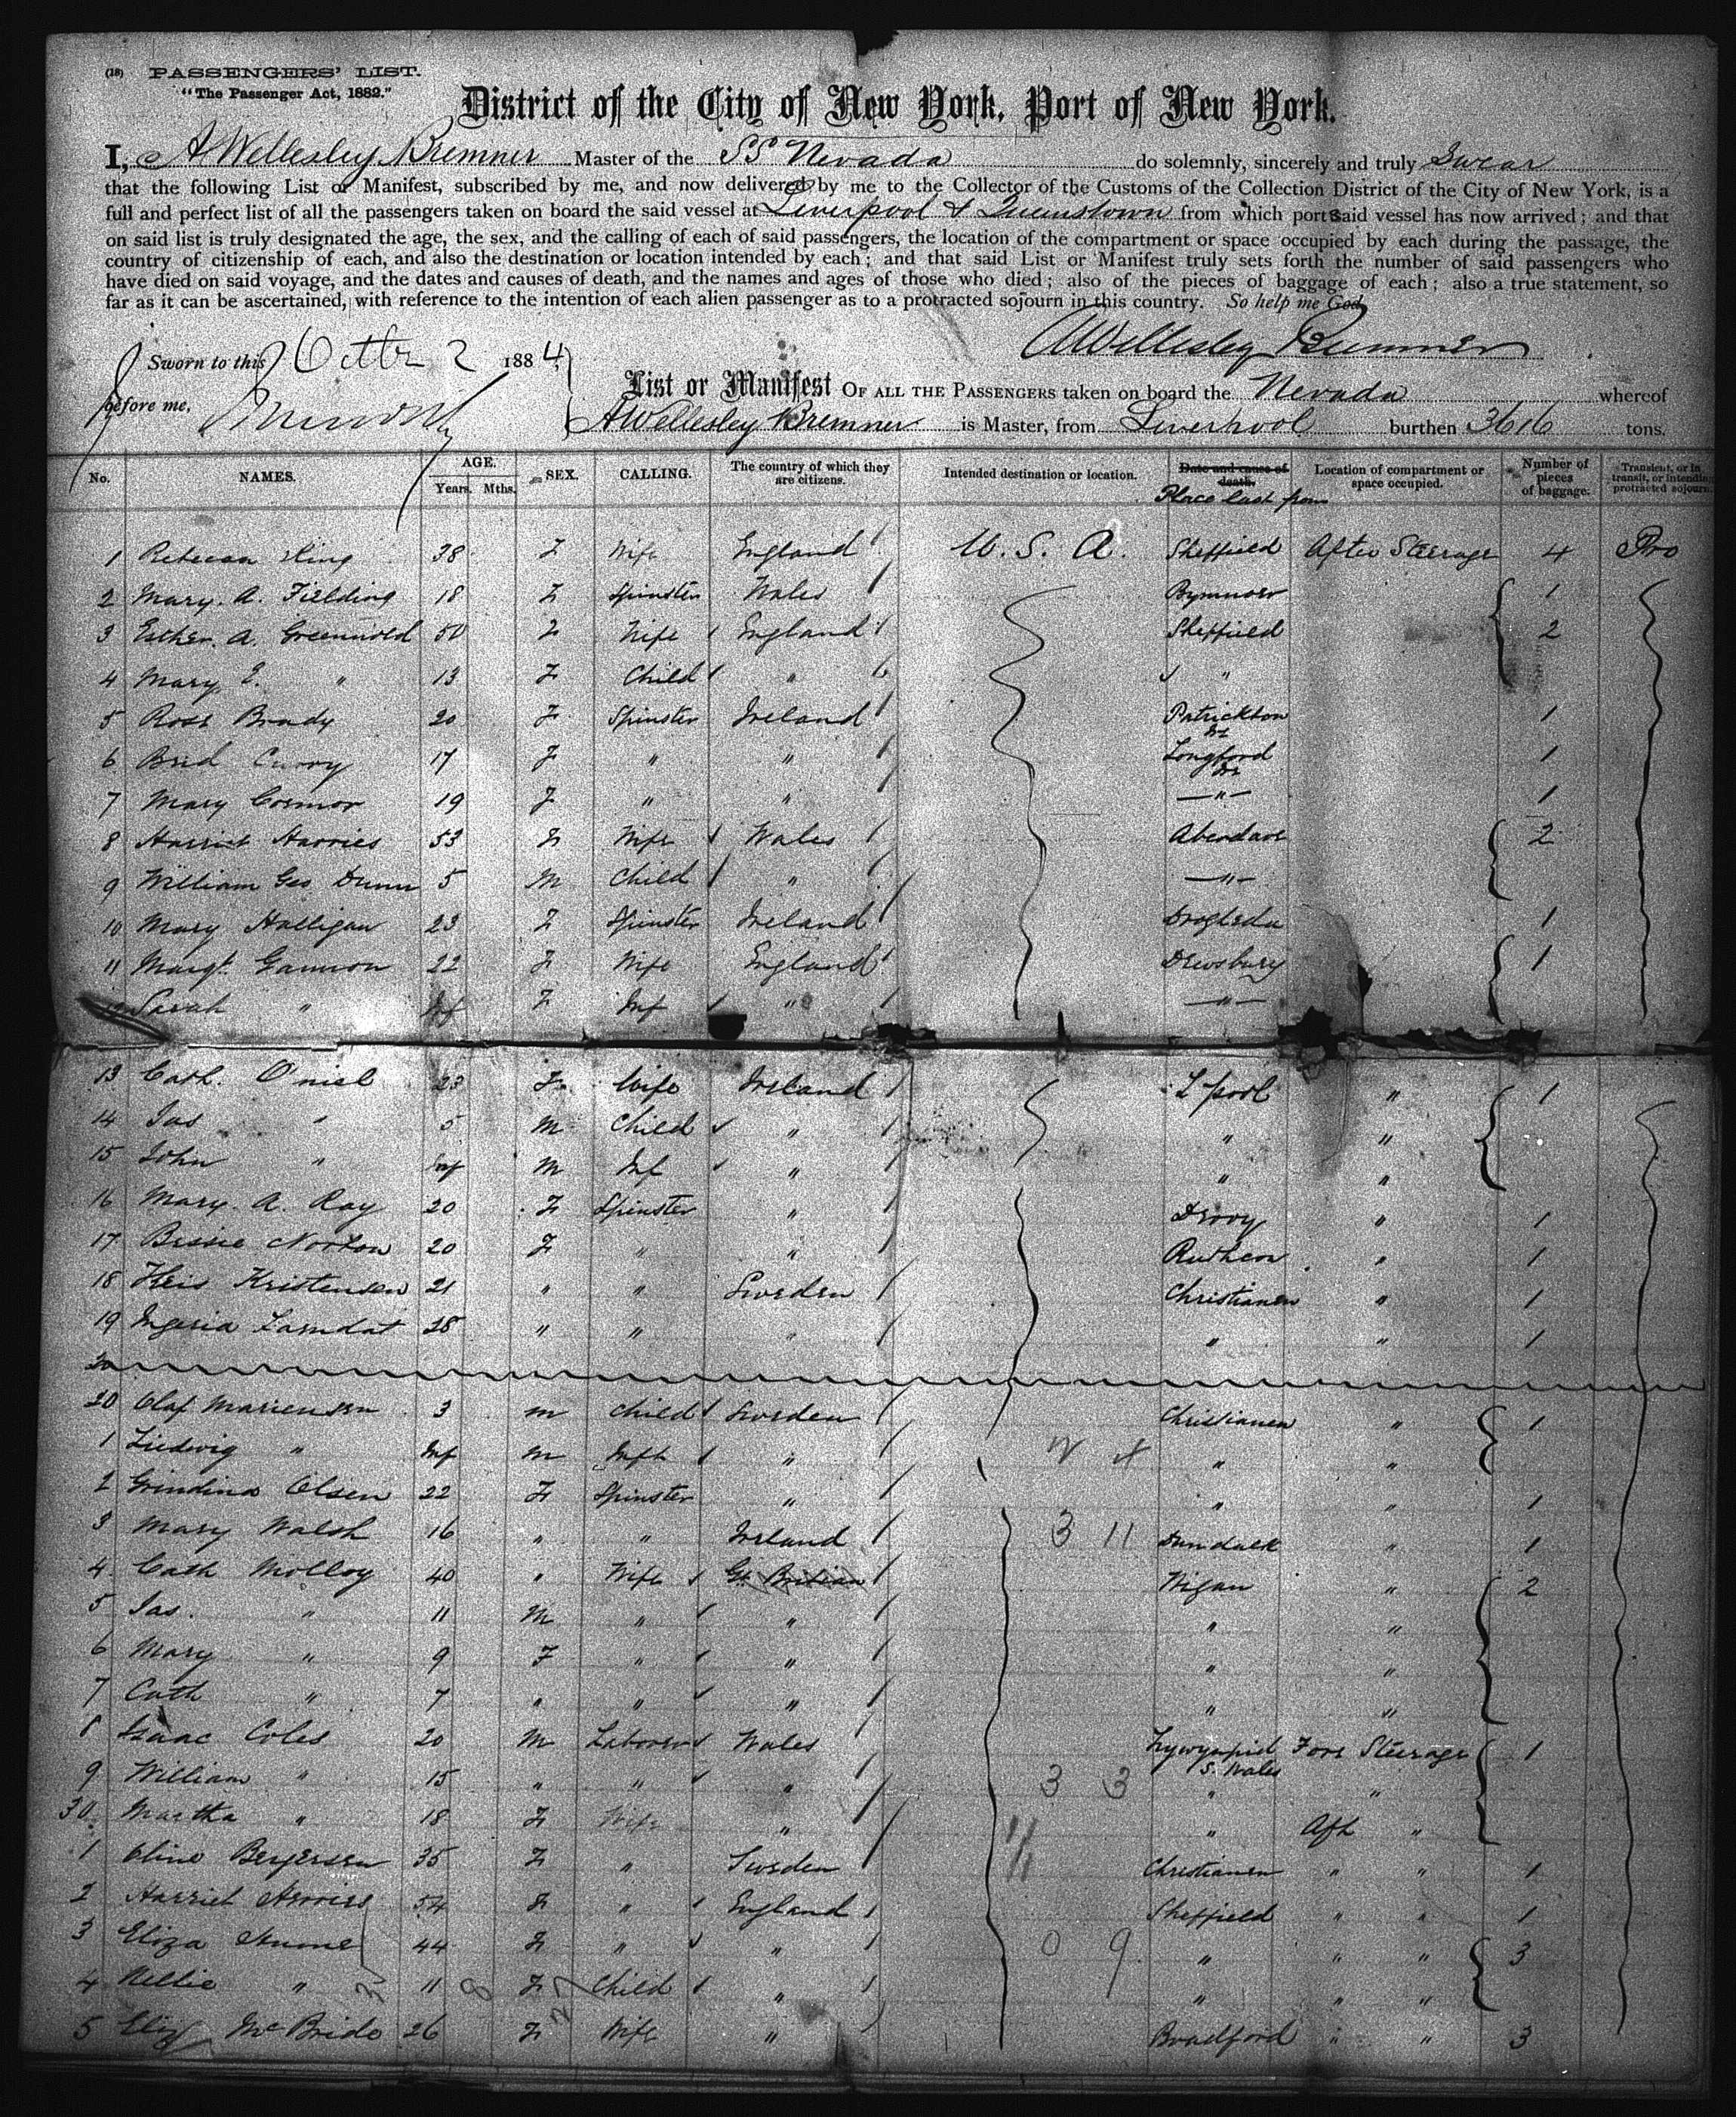 (18) PASSENGERS' LIST.
"The Passenger Act, 1882."
District of the City of New York, Port of New York.
I, A Wellesley Bremner Master of the SS Nevada do solemnly, sincerely and truly Swear
that the following List or Manifest, subscribed by me, and now delivered by me to the Collector of the Customs of the Collection District of the City of New York, is a
full and perfect list of all the passengers taken on board the said vessel at Liverpool & Queenstown from which ports said vessel has now arrived; and that
on said list is truly designated the age, the sex, and the calling of each of said passengers, the location of the compartment or space occupied by each during the passage, the
country of citizenship of each, and also the destination or location intended by each; and that said List or Manifest truly sets forth the number of said passengers who
have died on said voyage, and the dates and causes of death, and the names and ages of those who died; also of the pieces of baggage of each; also a true statement, so
far as it can be ascertained, with reference to the intention of each alien passenger as to a protracted sojourn in this country. So help me God
A Wellesley Bremner
Sworn to this Octbr 2 1884,
before me,
List or Manifest OF ALL THE PASSENGERS taken on board the Nevada whereof
A Wellesley Bremner is Master, from Liverpool burthen 3616 tons.
No. NAMES. AGE. Years. Mths. SEX. CALLING. The country of which they are citizens. Intended destination or location. Date and cause of death. Place last from Location of compartment or space occupied. Number of pieces of baggage. Transient, or in transit, or intending protracted sojourn.
1 Rebecca King 38 F Wife England U. S. A. Sheffield After Steerage 4 Pro
2 Mary. A. Fielding 18 F Spinster Wales 1
3 Esther. A. Greenwold 50 F Wife England Sheffield 2
4 Mary E. " 13 F Child " "
5 Rose Brady 20 F Spinster Ireland 1
6 Brid Curry 17 F " " Longford 1
7 Mary Connor 19 F " " " 1
8 Harriet Harries 53 F Wife Wales Aberdare 2
9 William Geo Dunn 5 M Child " "
10 Mary Halligan 23 F Spinster Ireland Drogheda 1
11 Margt. Gannon 22 F Wife England Dewsbury 1
12 Sarah " Inf F Inf " "
13 Cath. O'niel 23 F Wife Ireland L'pool " 1
14 Jas " 5 M Child " " "
15 John " Inf M Inf " " "
16 Mary. A. Ray 20 F Spinster " " 1
17 Bessie Norton 20 F " " " 1
18 Kristensen 21 " " Sweden Christianen " 1
19 28 " " " " " 1
20 Olaf Mariensen 3 m Child Sweden Christianen " 1
1 Ludwig " Inf m Inft " " "
2 Olsen 22 F Spinster " " " 1
3 Mary Walsh 16 " " Ireland 3 11 Dundalk " 1
4 Cath Molloy 40 " Wife Gt. Britian Wigan " 2
5 Jas. " 11 M " " " "
6 Mary " 9 F " " " "
7 Cath " 7 " " " " "
8 Isaac Coles 20 M Laborer Wales Fore Steerage 1
S. Wales
9 William " 15 " " " 3 3 " "
30 Martha " 18 F Wife " " Aft "
1 Oline Bergersen 35 F " Sweden Christianen " " 1
2 Harriet 54 F " England Sheffield " " 1
3 Eliza 44 F " " 0 9 " " " 3
4 Nellie " 11 F Child " " " "
5 Eliz McBride 26 F Wife " Bradford " " 3